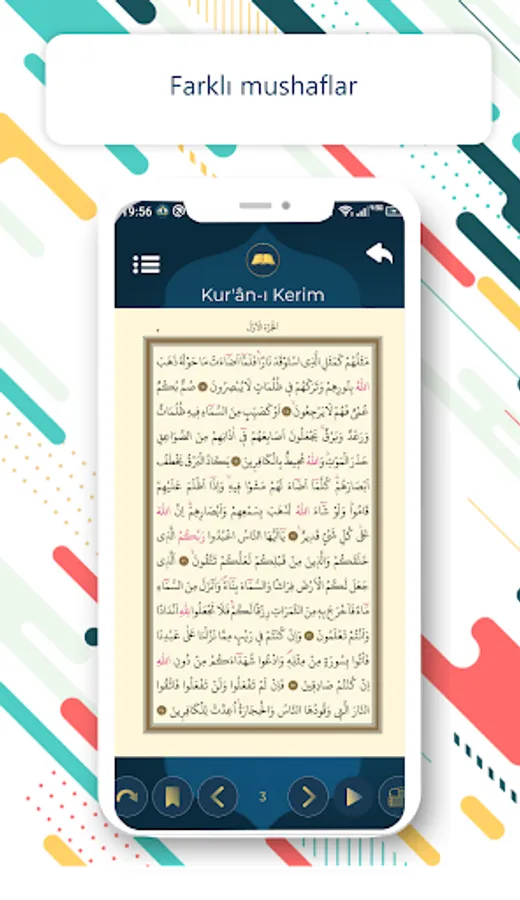 Farklı mushaflar
19:56
Kur'ân-ı Kerim
اَلْجُزْءُ الْاَوَّلُ
مَثَلُهُمْ كَمَثَلِ الَّذِى اسْتَوْقَدَ نَارًاۚ فَلَمَّٓا اَضَٓاءَتْ مَا حَوْلَهُ ذَهَبَ
اللّٰهُ بِنُورِهِمْ وَتَرَكَهُمْ فِى ظُلُمَاتٍ لَا يُبْصِرُونَ صُمٌّ بُكْمٌ
عُمْىٌ فَهُمْ لَا يَرْجِعُونَ اَوْ كَصَيِّبٍ مِنَ السَّمَٓاءِ فِيهِ ظُلُمَاتٌ
وَرَعْدٌ وَبَرْقٌۚ يَجْعَلُونَ اَصَابِعَهُمْ فِٓى اٰذَانِهِمْ مِنَ الصَّوَاعِقِ
حَذَرَ الْمَوْتِۜ وَاللّٰهُ مُحِيطٌ بِالْكَافِرِينَ يَكَادُ الْبَرْقُ يَخْطَفُ
اَبْصَارَهُمْۜ كُلَّمَٓا اَضَٓاءَ لَهُمْ مَشَوْا فِيهِ وَاِذَٓا اَظْلَمَ عَلَيْهِمْ
قَامُواۜ وَلَوْ شَٓاءَ اللّٰهُ لَذَهَبَ بِسَمْعِهِمْ وَاَبْصَارِهِمْۜ اِنَّ اللّٰهَ
عَلٰى كُلِّ شَىْءٍ قَدِيرٌ يَٓا اَيُّهَا النَّاسُ اعْبُدُوا رَبَّكُمُ الَّذِى
خَلَقَكُمْ وَالَّذِينَ مِنْ قَبْلِكُمْ لَعَلَّكُمْ تَتَّقُونَ اَلَّذِى
جَعَلَ لَكُمُ الْاَرْضَ فِرَاشًا وَالسَّمَٓاءَ بِنَٓاءً وَاَنْزَلَ مِنَ السَّمَٓاءِ
مَٓاءً فَاَخْرَجَ بِهِ مِنَ الثَّمَرَاتِ رِزْقًا لَكُمْۚ فَلَا تَجْعَلُوا لِلّٰهِ اَنْدَادًا
وَاَنْتُمْ تَعْلَمُونَ وَاِنْ كُنْتُمْ فِى رَيْبٍ مِمَّا نَزَّلْنَا عَلٰى عَبْدِنَا
فَأْتُوا بِسُورَةٍ مِنْ مِثْلِهِ وَادْعُوا شُهَدَٓاءَكُمْ مِنْ دُونِ اللّٰهِ
اِنْ كُنْتُمْ صَادِقِينَ فَاِنْ لَمْ تَفْعَلُوا وَلَنْ تَفْعَلُوا فَاتَّقُوا
النَّارَ الَّتِى وَقُودُهَا النَّاسُ وَالْحِجَارَةُۚ اُعِدَّتْ لِلْكَافِرِينَ
3